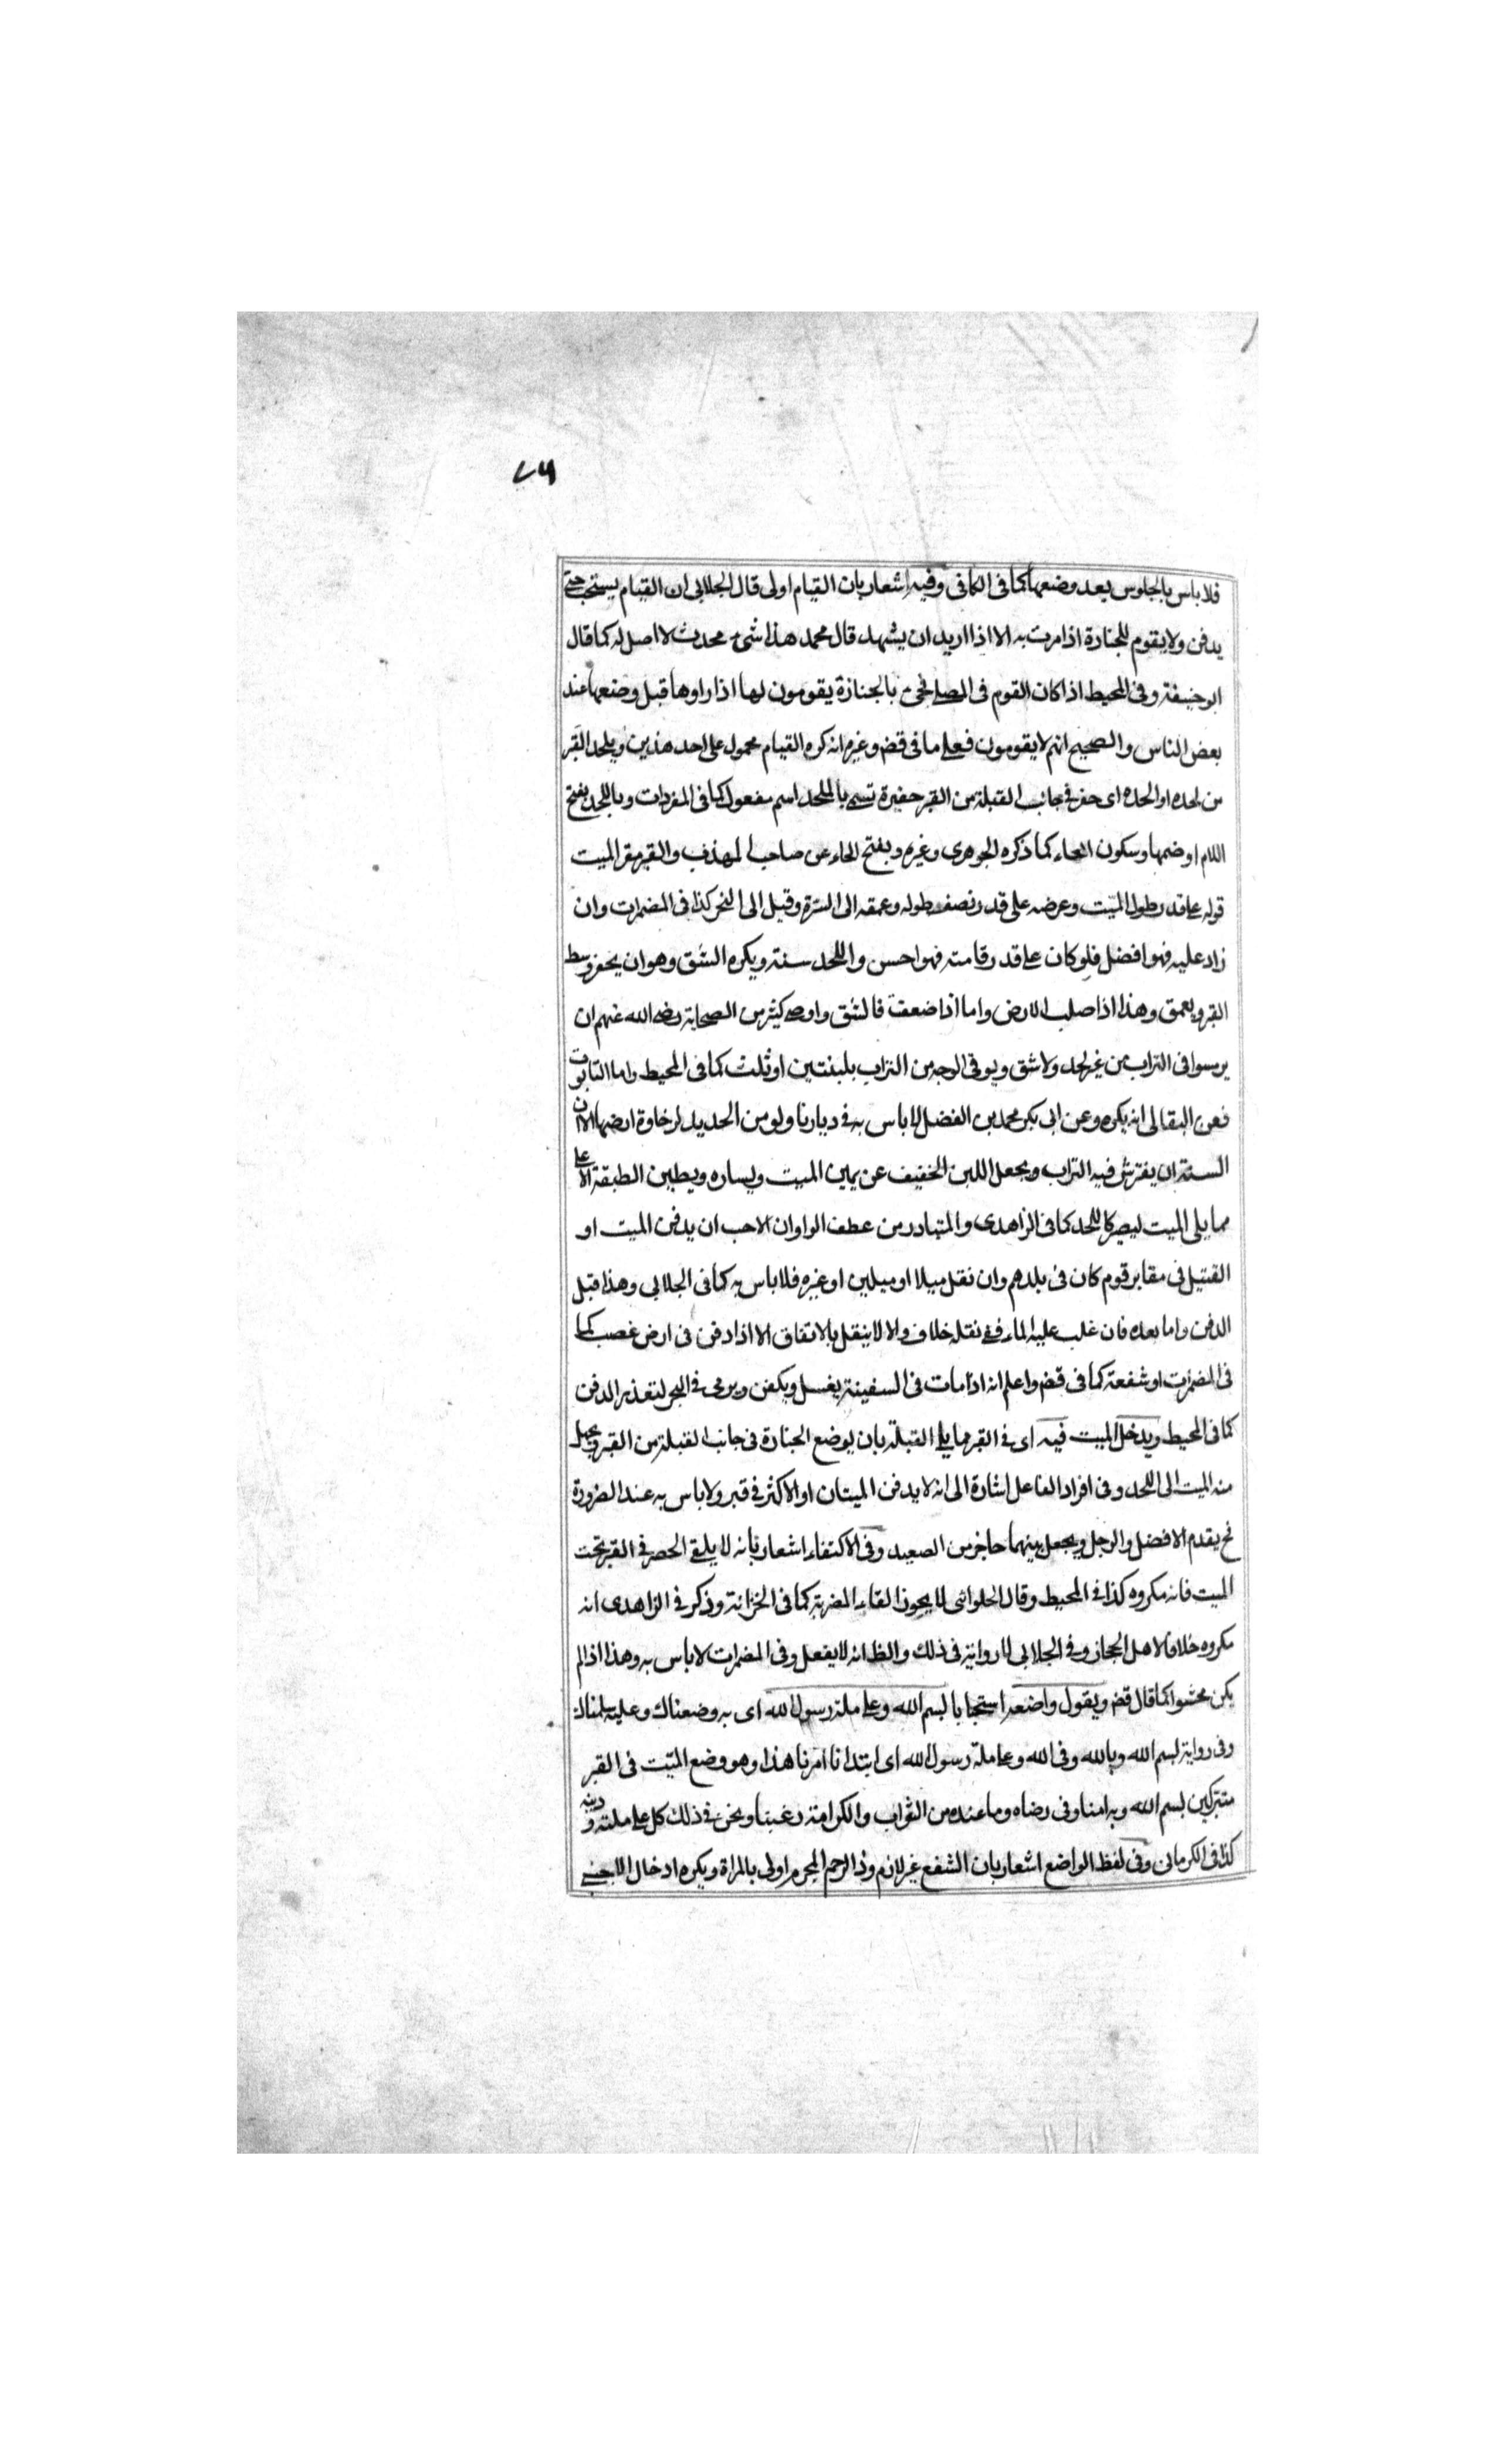 فلا باس بالجلوس بعد وضعها كما فى الكافى وفيه اشعار بان القيام اولى قال الجلابى ان القيام يستحب حتى
يدفن ولا يقوم للجنازة اذا مرت به الا اذا اريد ان يشهد قال محمد هذا شىء محدث لا اصل له كما قال
ابو حنيفة وفى المحيط اذا كان القوم فى المصلى فجىء بالجنازة يقومون لها اذا راوها قبل وضعها عند
بعض الناس والصحيح انهم لا يقومون فعلى ما فى قض وغيره انه كره القيام محمول على احد هذين ويلحد القبر
من لحده او الحده اى حفر فى جانب القبلة من القبر حفيرة تسمى بالملحد اسم مفعول كما فى المفردات وباللحد بفتح
اللام او ضمها وسكون الحاء كما ذكره الجوهرى وغيره وبفتح الحاء عن صاحب المهذب والقبر مقر الميت
قوله على قدر طول الميت وعرضه على قدر نصف طوله وعمقه الى السرة وقيل الى النحر كذا فى المضمرات وان
زاد عليه فهو افضل فلو كان على قدر قامته فهو احسن واللحد سنة ويكره الشق وهو ان يحفر وسط
القبر ويعمق وهذا اذا صلب الارض واما اذا ضعفت فالشق واوصى كثير من الصحابة رضى الله عنهم ان
يرمسوا فى التراب من غير لحد ولا شق ويوقى الوجه من التراب بلبنتين او ثلث كما فى المحيط واما التابوت
فعن البقالى انه يكره وعن ابى بكر محمد بن الفضل لا باس به فى ديارنا ولو من الحديد لرخاوة ارضها الا ان
السنة ان يفترش فيه التراب ويجعل اللبن الخفيف عن يمين الميت ويساره ويطين الطبقة الاعلى
مما يلى الميت ليصير كاللحد كما فى الزاهدى والمتبادر من عطف الواو ان الاحب ان يدفن الميت او
القتيل فى مقابر قوم كان فى بلدهم وان نقل ميلا او ميلين او غيره فلا باس به كما فى الجلابى وهذا قبل
الدفن واما بعده فان غلب عليه الماء ففى نقله خلاف والا لا ينقل بالاتفاق الا اذا دفن فى ارض غصب كما
فى المضمرات او شفعة كما فى قض واعلم انه اذا مات فى السفينة يغسل ويكفن ويرمى فى البحر لتعذر الدفن
كما فى المحيط ويدخل الميت فيه اى فى القبر مما يلى القبلة بان يوضع الجنازة فى جانب القبلة من القبر ويحمل
منه الميت الى اللحد وفى افراد الفاعل اشارة الى انه لا يدفن الميتان او الاكثر فى قبر ولا باس به عند الضرورة
فح يقدم الافضل والرجل ويجعل بينهما حاجز من الصعيد وفى الاكتفاء اشعار بانه لا يلقى الحصر فى القبر تحت
الميت فانه مكروه كذا فى المحيط وقال الحلوانى لا يجوز القاء المضربة كما فى الخزانة وذكر فى الزاهدى انه
مكروه خلافا لاهل الحجاز وفى الجلابى لا رواية فى ذلك والظ انه لا يفعل وفى المضمرات لا باس به وهذا اذا لم
يكن محشوا كما قال قض ويقول واضعه استحبابا بسم الله وعلى ملة رسول الله اى به وضعناك وعليه سلمناك
وفى رواية بسم الله وبالله وفى الله وعلى ملة رسول الله اى ابتدانا امرنا هذا وهو وضع الميت فى القبر
متبركين بسم الله وبه امنا وفى رضاه وما عنده من الثواب والكرامة رغبنا ونحن فى ذلك كل على ملته ودينه
كذا فى الكرمانى وفى لفظ الواضع اشعار بان الشفع غير لازم وذا الرحم المحرم اولى بالمراة ويكره ادخال الاجنبى